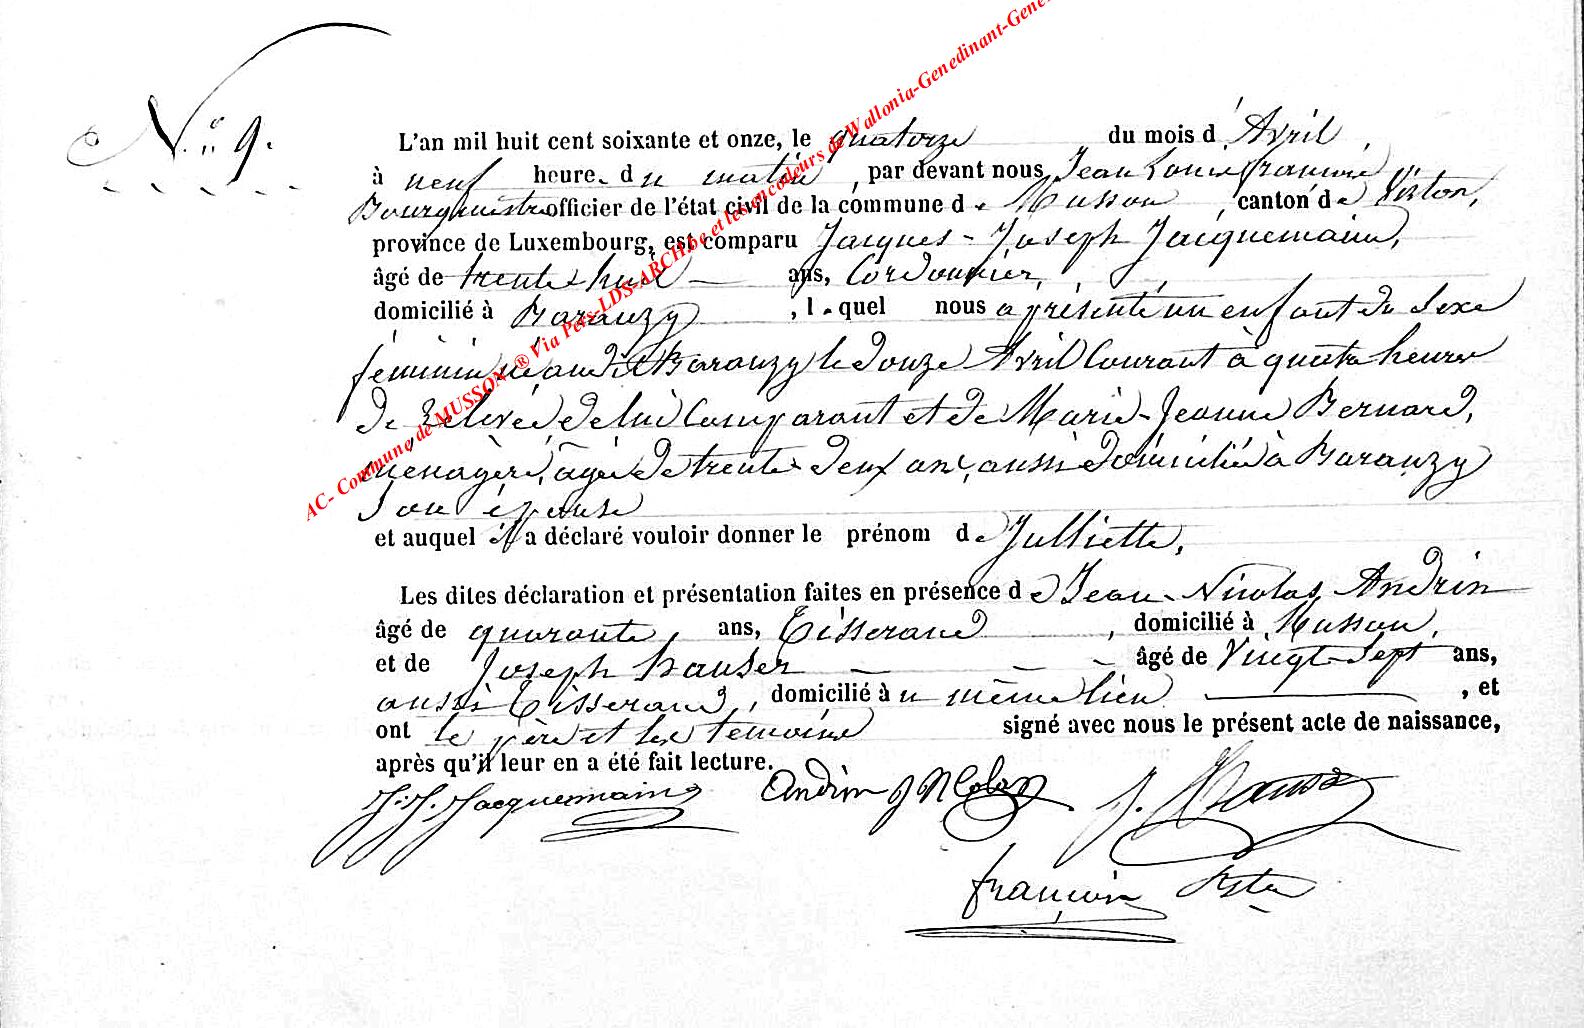 AC- Commune de MUSSON ® Via Pers-LDS-ARCH.be et les encodeurs de Wallonia-Genedinant-Gene
N.o 9.
L'an mil huit cent soixante et onze, le quatorze du mois d' Avril,
à neuf heure. du matin, par devant nous, Jean Louis françois
Bourgmestre officier de l'état civil de la commune de Musson, canton de Virton,
province de Luxembourg, est comparu Jacques-Joseph Jacquemain,
âgé de trente huit ans, Cordonnier,
domicilié à Baranzy, l.quel nous a présenté un enfant du Sexe
féminin né, audit Baranzy le douze Avril Courant à quatre heures
de relevée, de lui Comparant et de Marie-Jeanne Bernard,
ménagère, âgée de trente deux ans, aussi domiciliée à Baranzy
Son épouse
et auquel il a déclaré vouloir donner le prénom de Julliette,
Les dites déclaration et présentation faites en présence de Jean-Nicolas Andrin
âgé de quarante, ans, Tisserand, domicilié à Musson,
et de Joseph hauser âgé de Vingt-Sept ans,
aussi Tisserand, domicilié au même lieu, et
ont le père et les témoins signé avec nous le présent acte de naissance,
après qu'il leur en a été fait lecture.
J.-J. Jacquemain Andrin J Nicolas J. Hauser
françois